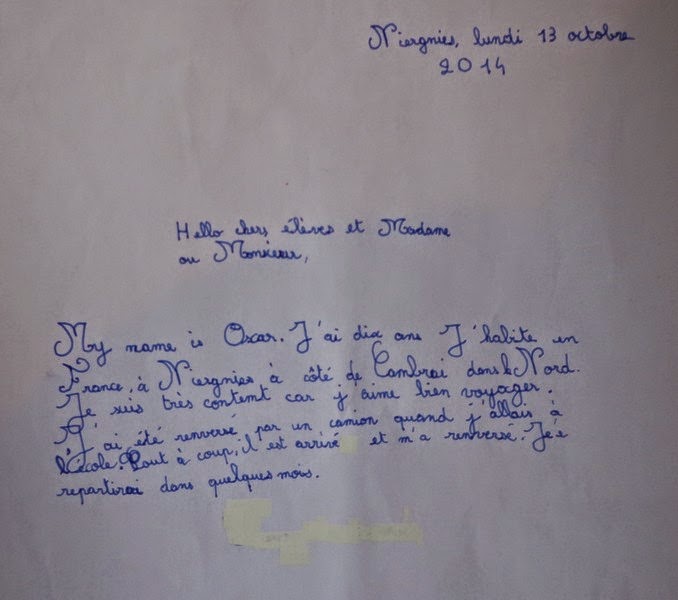 Niergnies, lundi 13 octobre
2014
Hello chers élèves et Madame
ou Monsieur,
My name is Oscar. J'ai dix ans J'habite en
France, à Niergnies à côté de Cambrai dans le Nord.
Je suis très content car j'aime bien voyager.
J'ai été renversé par un camion quand j'allais à
l'école. Tout à coup, il est arrivé et m'a renversé. Je
repartirai dans quelques mois.